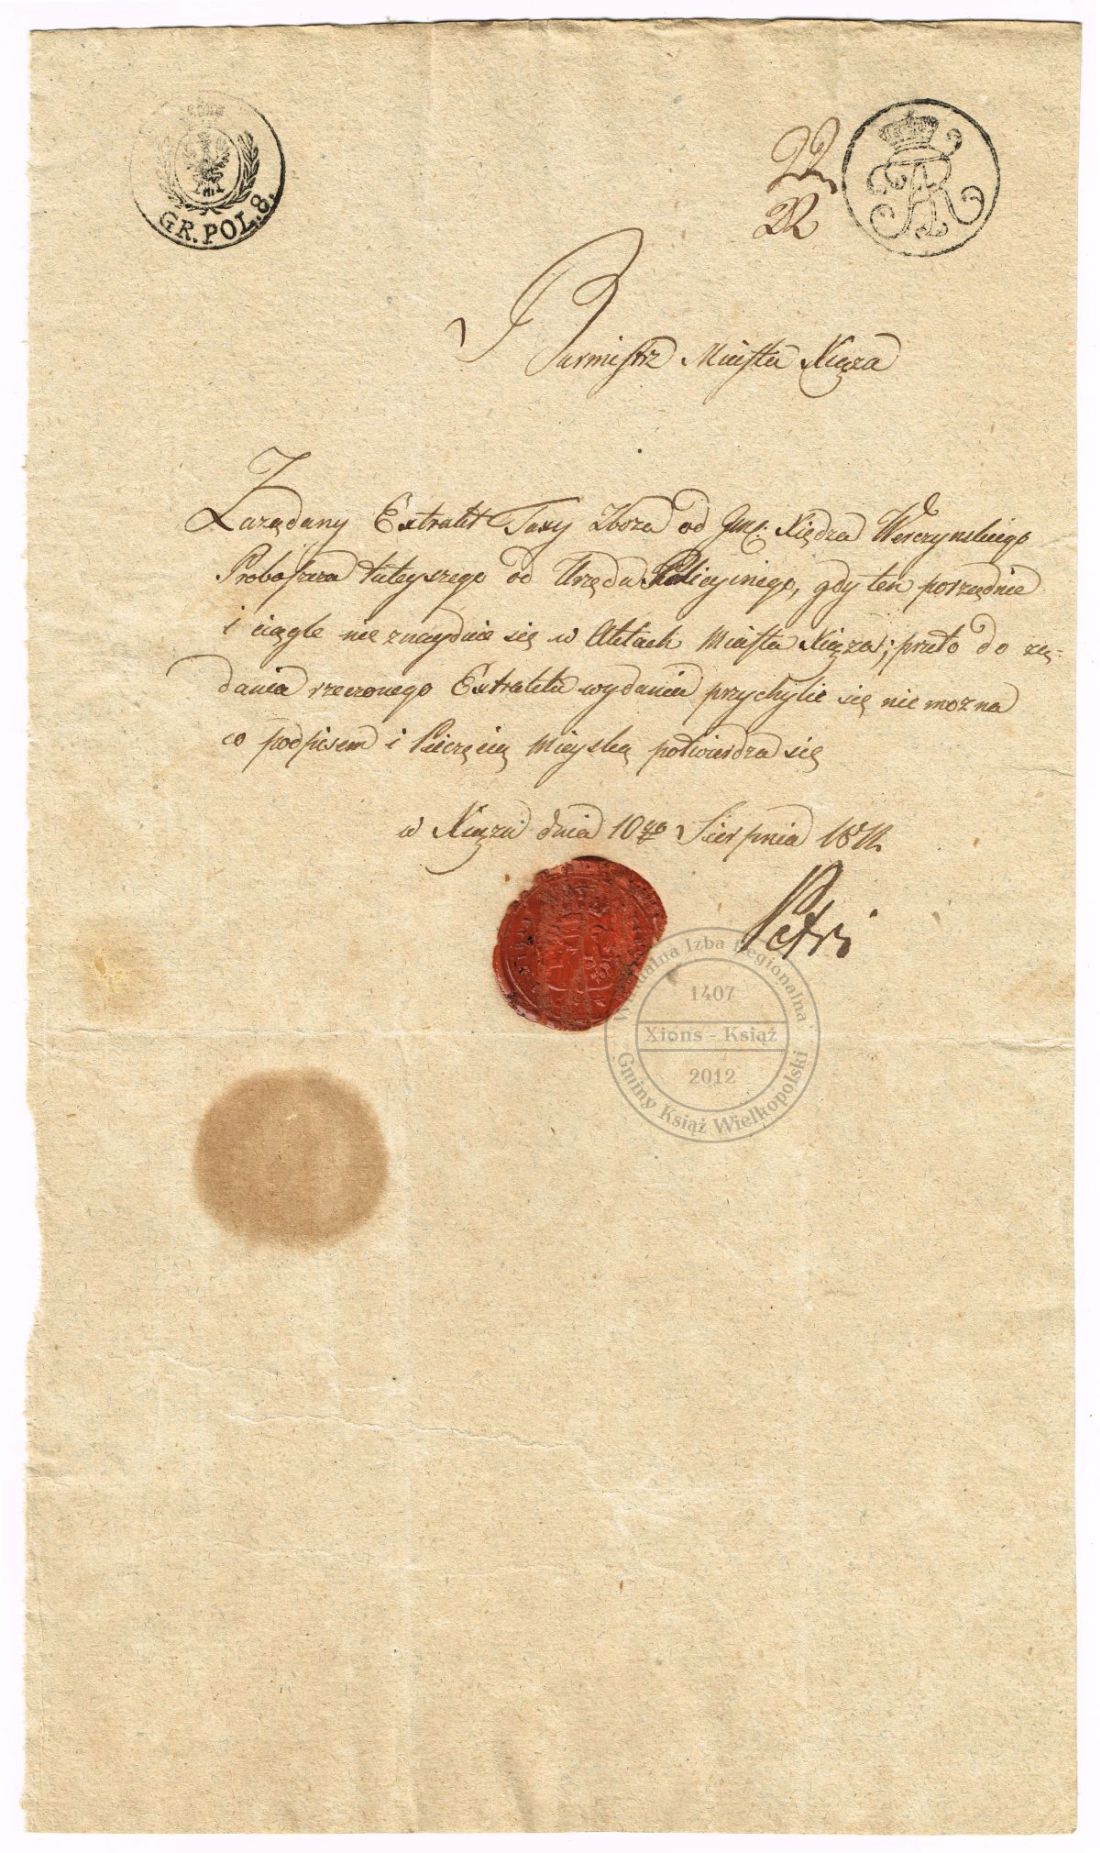 GR. POL. 8.
22
22
FAR
Burmistrz Miasta Xięza
Zarządany Extrakt Taxy Zboza od Jmc. Xiędza Werczynskiego
Proboszcza tuteyszego od Urzędu Policyinego, gdy ten porzędnie
i ciągle nie znayduie się w Aktach Miasta Xiąza; prźeto do rzą-
dania rzeczonego Extraktu wydania przychylic się nie mozna
co podpisem i Pieczęcią Mieyską potwierdza się
w Xiązu dnia 10go Sierpnia 181
Petri
Wirtualna Izba Regionalna
1407
Xions - Książ
2012
Gminy Książ Wielkopolski